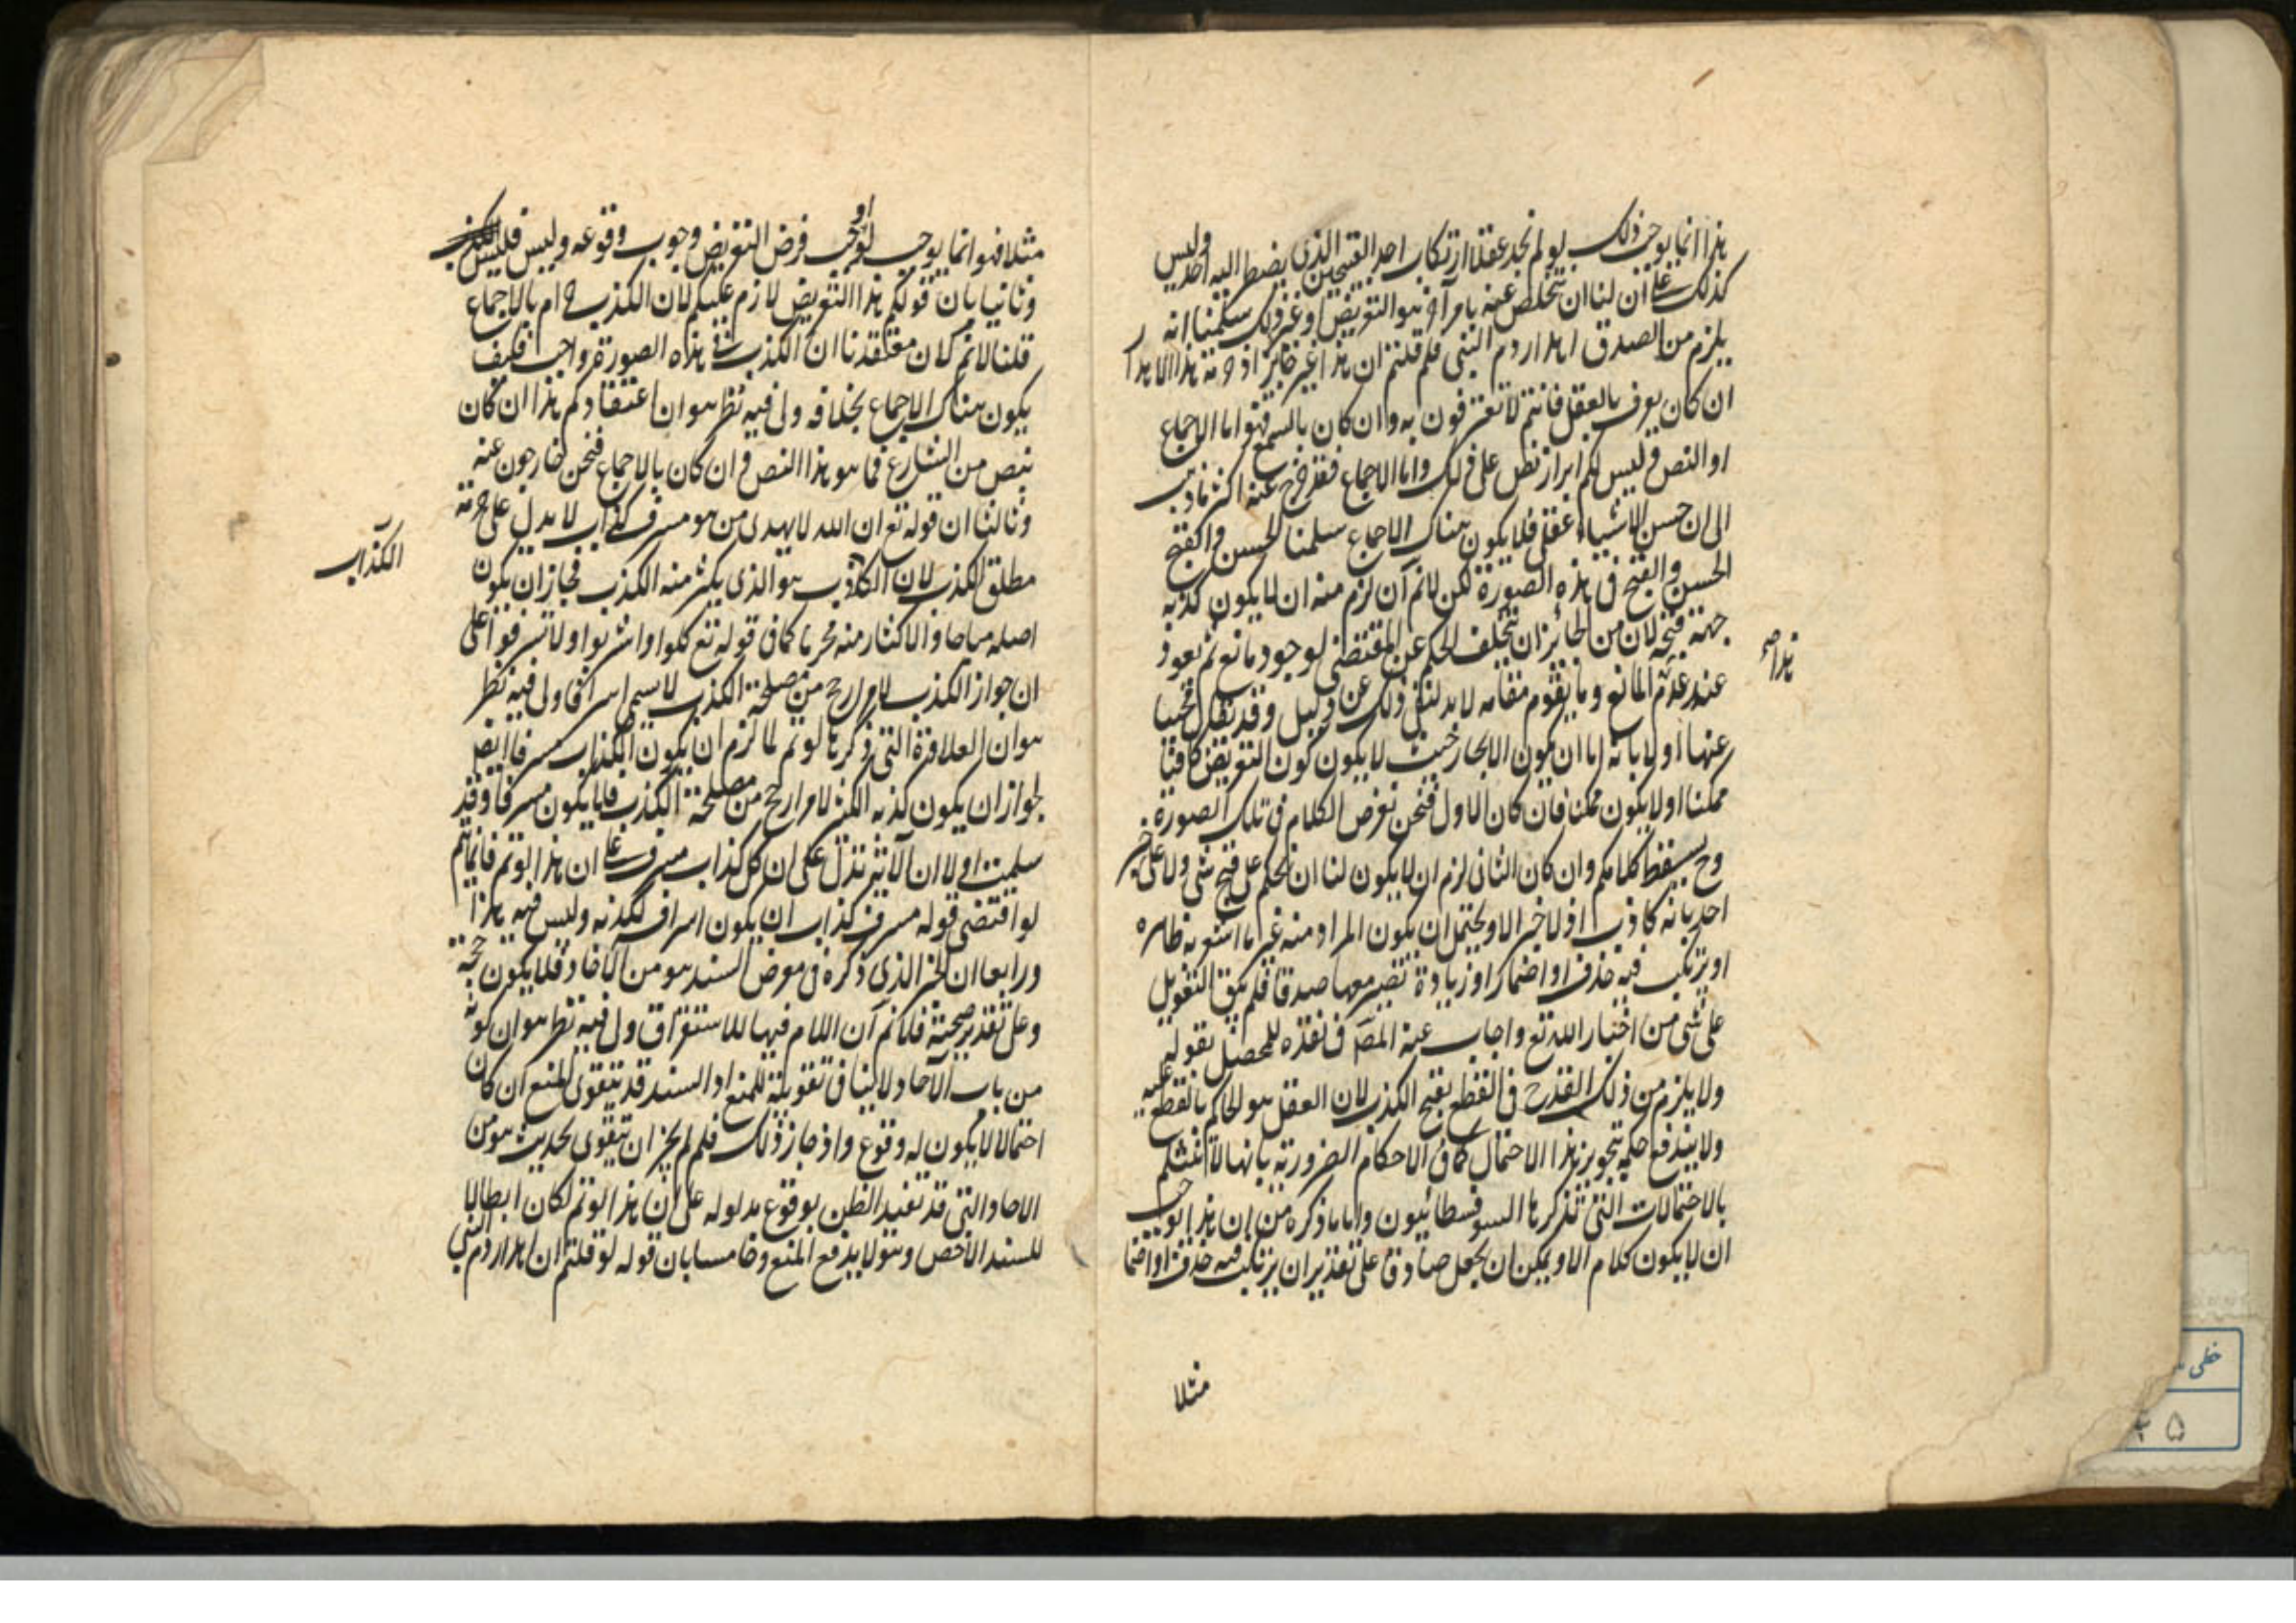 هذا انما يوجب ذلك لو لم نجد عقلا ارتكاب احد القبيحين الذى يضطر اليه احد وليس
كذلك على ان لنا ان نتخلص عنه بامر آخر هو التعريض او غير ذلك سلمنا انه
يلزم من الصدق اهدار دم النبى فلم قلتم ان هذا غير جايز اذ حرمة هذا الاهدار
ان كان يعرف بالعقل فانتم لا تعترفون به وان كان بالسمع فهو اما الاجماع
او النص وليس لكم ابراز نص على ذلك واما الاجماع فقد خرج عنه اكثر
الى ان حسن الاشياء عقلى فلا يكون هناك الاجماع سلمنا الحسن والقبح
الحسن والقبح فى هذه الصورة لكن لانم ان لزم منه ان لا يكون كذبه
جهة قبحه لان من الجائز ان يتخلف الحكم عن المقتضى لوجود مانع ثم يعود
هذا صح
عند عدم المانع وما يقوم مقامه لا بد لنفى ذلك عن دليل وقد نقل
عنها اولا بانه اما ان يكون الابحار بحيث لا يكون كون التعريض كافيا
ممكنا او لا يكون ممكنا فان كان الاول فنحن نفرض الكلام فى تلك الصورة
وح يسقط كلامكم وان كان الثانى لزم ان لا يكون لنا ان نحكم على قبح شى ولا على خبر
احد بانه كاذب اذ لا خبر الا ويحتمل ان يكون المراد منه غير ما اشعر به ظاهره
او يرتكب فيه حذف او اضمار او زيادة تصير معها صدقا فلم يبق التعويل
على شى من اخبار الله تع واجاب عنه المص فى نقده للمحصل بقوله
ولا يلزم من ذلك القدح فى القطع بقبح الكذب لان العقل هو الحاكم بالقطع عليه
ولا يندفع حكمه بتجويز هذا الاحتمال كما فى الاحكام الضرورية بانها لا تنثلم
بالاحتمالات التى تذكرها السوفسطائيون واما ما ذكره من ان هذا يوجب
ان لا يكون كلام الا ويمكن ان يجعل صادقا على تقدير ان يرتكب فيه حذف او اضما
مثلا
مثلا فهو انما يوجب لو اوجب فرض التعريض وجوب وقوعه وليس فليس
وثانيا بان قولكم هذا التعريض لازم عليكم لان الكذب حرام بالاجماع
قلنا لانم لان معتقدنا ان الكذب فى هذه الصورة واجب فكيف
يكون هناك الاجماع بخلافه ولى فيه نظر هو ان اعتقادكم هذا ان كان
بنص من الشارع فما هو هذا النص وان كان بالاجماع فنحن خارجون عنه
وثالثا ان قوله تع ان الله لا يهدى من هو مسرف كذاب لا يدل على حرمة
مطلق الكذب لان الكاذب هو الذى يكثر منه الكذب فجاز ان يكون
الكذاب
اصله مباحا والاكثار منه محرما كما فى قوله تع كلوا واشربوا ولا تسرفوا على
ان جواز الكذب لامر ارجح من مصلحة الكذب لا يسمى اسرافا ولى فيه نظر
هو ان العلاقة التى ذكرها لو تم لما لزم ان يكون الكذاب مسرفا ايض
لجواز ان يكون كذبه اكثر لامر ارجح من مصلحة الكذب فلا يكون مسرفا وقد
سلمت اولا ان الاية تدل على ان كل كذاب مسرف على ان هذا لو تم فانما يتم
لو اقتضى قوله مسرف كذاب ان يكون اسرافه لكذبه وليس فيه هذا
ورابعا ان الخبر الذى ذكره فى معرض السند هو من الاحاد فلا يكون حجة
وعلى تقدير صحته فلا نم ان اللام فيها للاستغراق ولى فيه نظر هو ان كونه
من باب الاحاد لا ينافى تقويته للمنع اذ السند قد يتقوى المنع ان كان
احتمالا لا يكون له وقوع واذ جاز ذلك فلم لم يجز ان يتقوى بحديث هو من
الاحاد التى قد تفيد الظن بوقوع مدلوله على ان هذا لو تم لكان ابطالا
للسند الاخص وهو لا يدفع المنع وخامسا بان قوله لو قلتم ان اهدار دم النبى